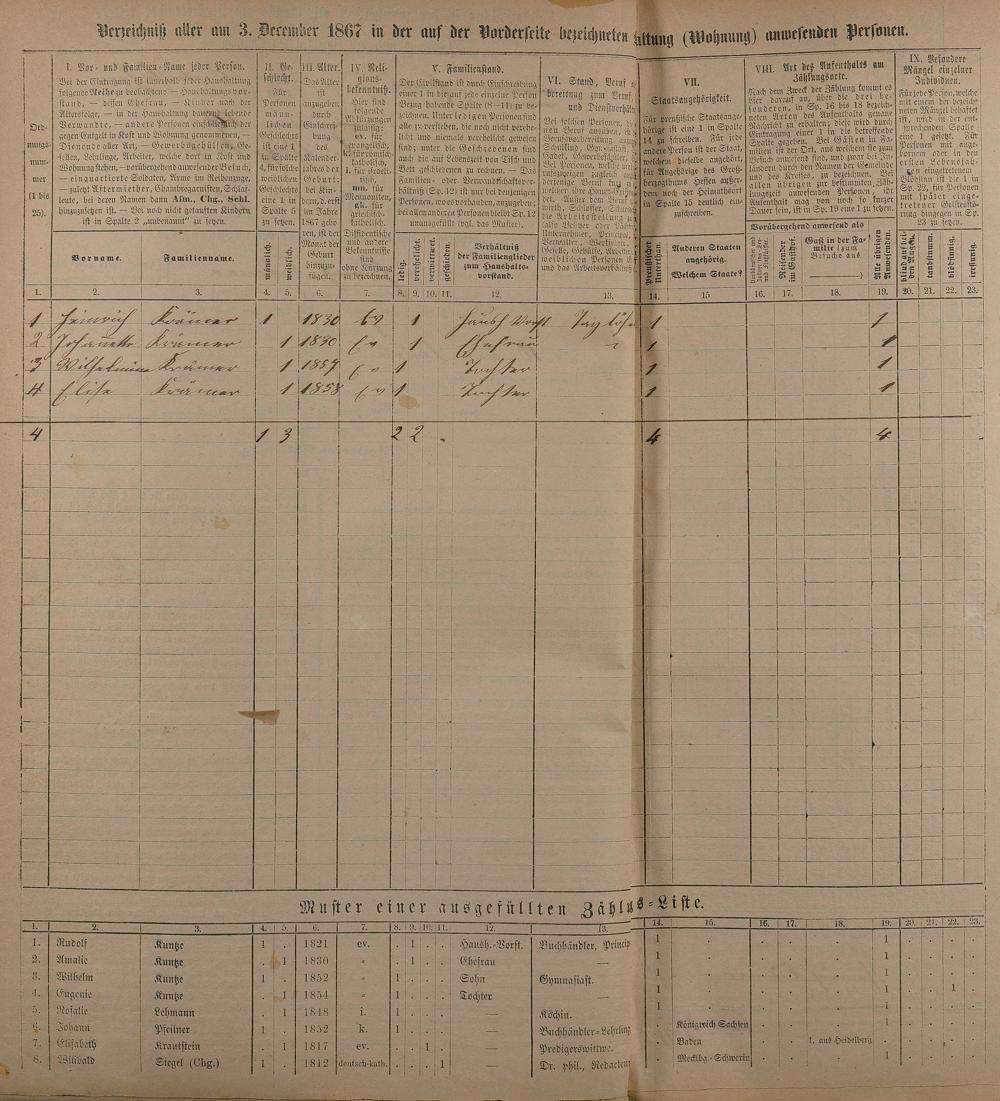 Verzeichniß aller am 3. December 1867 in der auf der Vorderseite bezeichneten altung (Wohnung) anwesenden Personen.
Ord-
nungs-
num-
mer
(1 bis
25).
I. Vor- und Familien-Name jeder Person.
Bei der Eintragung ist innerhalb jeder Haushaltung
folgende Reihe zu beobachten: — Haushaltungsvor-
stand, — dessen Ehefrau, — Kinder nach der
Altersfolge, — in der Haushaltung dauernd lebende
Verwandte, — andere Personen einschließlich der
gegen Entgelt in Kost und Wohnung genommenen, —
Dienende aller Art, — Gewerbsgehülfen, Ge-
sellen, Lehrlinge, Arbeiter, welche dort in Kost und
Wohnung stehen, — vorübergehend anwesender Besuch,
— einquartierte Soldaten, Arme im Reihenzuge,
— zuletzt Aftermiether, Chambregarnisten, Schlaf-
leute, bei deren Namen dann Afm., Chg., Schl.
hinzuzusetzen ist. — Bei noch nicht getauften Kindern
ist in Spalte 2 „unbenannt" zu setzen.
Vorname. Familienname.
II. Ge-
schlecht.
Für
Personen
männ-
lichen
Geschlechts
ist eine 1
in Spalte
4, für solche
weiblichen
Geschlechts
eine 1 in
Spalte 5
zu setzen.
männlich. weiblich.
III. Alter.
Das Alter
ist
anzugeben
durch
Einschrei-
bung
des
Kalender-
jahres der
Geburt;
bei Kin-
dern, d. erst
im Jahre
1867 gebo-
ren, ist der
Monat der
Geburt
hinzuzu-
fügen.
IV. Reli-
gions-
bekenntniß.
Hier sind
folgende
Abkürzungen
zulässig:
ev. für
evangelisch,
k. für römisch-
katholisch,
i. für israeli-
tisch,
mn. für
Mennoniten,
gk. für
griechisch-
katholisch.
Dissidentische
und andere
Bekenntnisse
sind
ohne Kürzung
zu verzeichnen.
V. Familienstand.
Der Civilstand ist durch Einschreibung
einer 1 in die auf jede einzelne Person
Bezug habende Spalte (8—11) zu be-
zeichnen. Unter ledigen Personen sind
alle zu verstehen, die noch nicht verehe-
licht und niemals verehelicht gewesen
sind; unter die Geschiedenen sind
auch die auf Lebenszeit von Tisch und
Bett geschiedenen zu rechnen. — Das
Familien- oder Verwandschaftsver-
hältniß (Sp. 12) ist nur bei denjenigen
Personen, wo es vorhanden, anzugeben;
bei allen anderen Personen bleibt Sp. 12
unausgefüllt (vgl. das Muster).
ledig. verehelicht. verwittwet. geschieden.
Verhältniß
der Familienglieder
zum Haushalts-
vorstand.
VI. Stand, Beruf
bereitung zum Beruf
und Dienstverhält
VII.
Staatsangehörigkeit.
Für preußische Staatsange-
hörige ist eine 1 in Spalte
14 zu schreiben. Für jede
andere Person ist der Staat,
welchem dieselbe angehört,
für Angehörige des Groß-
herzogthums Hessen außer-
dem noch der Heimathsort
in Spalte 15 deutlich ein-
zuschreiben.
Preußischer Unterthan.
Anderen Staaten
angehörig.
Welchem Staate?
VIII. Art des Aufenthalts am
Zählungsorte.
Nach dem Zweck der Zählung kommt es
hier darauf an, über die drei be-
sonderen, in Sp. 16 bis 18 bezeich-
neten Arten des Aufenthalts genaue
Nachricht zu erhalten; diese wird durch
Eintragung einer 1 in die betreffende
Spalte gegeben. Bei Gästen in Fa-
milien ist der Ort, aus welchem sie zum
Besuch anwesend sind, und zwar bei In-
ländern durch den Namen der Gemeinde
und des Kreises, zu bezeichnen. Bei
allen übrigen zur bestimmten Zäh-
lungszeit anwesenden Personen, ihr
Aufenthalt mag von noch so kurzer
Dauer sein, ist in Sp. 19 eine 1 zu setzen.
Vorübergehend anwesend als
Reisender im Gasthof.
Gast in der Fa-
milie (zum
Besuche aus
——)
Alle übrigen Anwesenden.
IX. Besondere
Mängel einzelner
Individuen.
blind auf bei-
den Augen. taubstumm. blödsinnig. irrsinnig.
1. 2. 3. 4. 5. 6. 7. 8. 9. 10. 11. 12. 13. 14. 15 16. 17. 18. 19. 20. 21. 22. 23.
1 Heinrich Krämer 1 1830 Ev 1 Haush Vorst Taglöh 1 1
2 Johanette Krämer 1 1830 Ev 1 Ehefrau 1 1
3 Wilhelmine Krämer 1 1857 Ev 1 Tochter 1 1
4 Elise Krämer 1 1858 Ev 1 Tochter 1 1
4 1 3 2 2 4 4
Muster einer ausgefüllten Zählu s-Liste.
1. 2. 3. 4. 5. 6. 7. 8. 9. 10. 11. 12. 13. 14. 15. 16. 17. 18. 19. 20. 21. 22. 23.
1. Rudolf Kuntze 1 . 1821 ev. . 1 . . Haush.-Vorst. Buchhändler, Princip 1 . . . . 1 . . . .
2. Amalie Kuntze . 1 1830 " . 1 . . Ehefrau — 1 . . . . 1 . . . .
3. Wilhelm Kuntze 1 . 1852 " 1 . . . Sohn Gymnasiast. 1 . . . . 1 . . . .
4. Eugenie Kuntze . 1 1854 " 1 . . . Tochter — 1 . . . . 1 . . 1 .
5. Rosalie Lehmann . 1 1848 i. 1 . . . — Köchin. 1 . . . . 1 . . . .
6. Johann Pfeilner 1 . 1852 k. 1 . . . — Buchhändler-Lehrling . Königreich Sachsen . . . 1 . . . .
7. Elisabeth Krautstein . 1 1817 ev. . . 1 . — Predigerswittwe. . Baden . . 1, aus Heidelberg . . . . .
8. Wilibald Siegel (Chg.) 1 . 1812 deutsch-kath. . . . 1 — Dr. phil., Redacteur . Mecklbg.-Schwerin . . . 1 . . . .